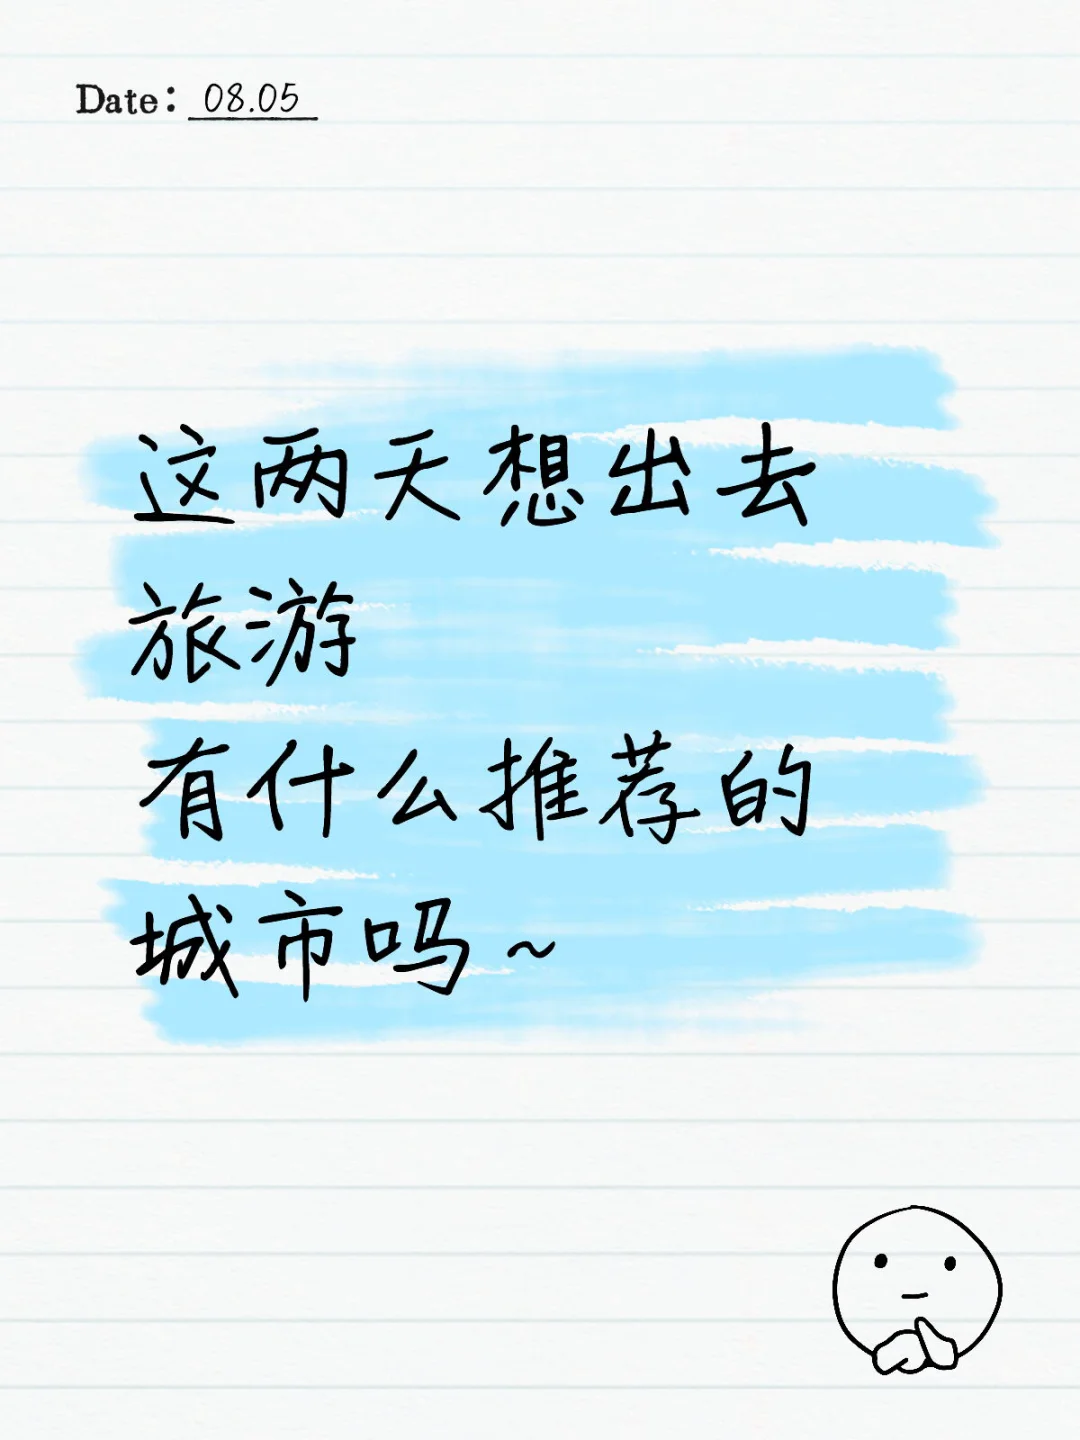 Date: 08.05
这两天想出去
旅游
有什么推荐的
城市吗~